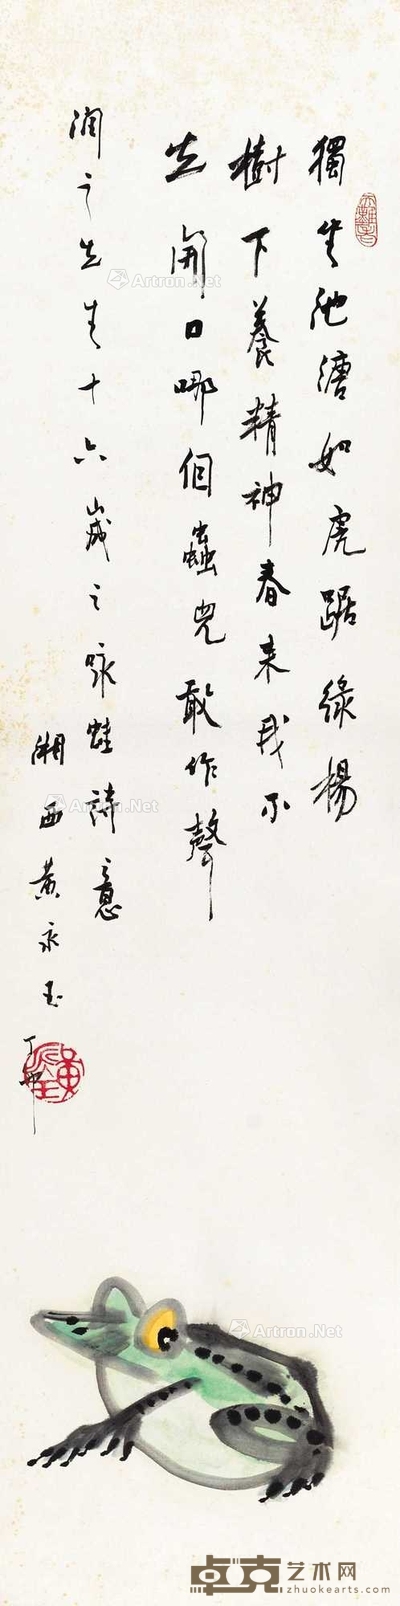 獨坐池塘如虎踞綠楊
樹下養精神春來我不
先開口哪個蟲兒敢作聲
潤之先生十六歲之咏蛙詩意
湘西黃永玉
丁卯
Artron.Net
Artron.Net
Artron.Net
Artron.Net
卓克艺术网
zhuokearts.com